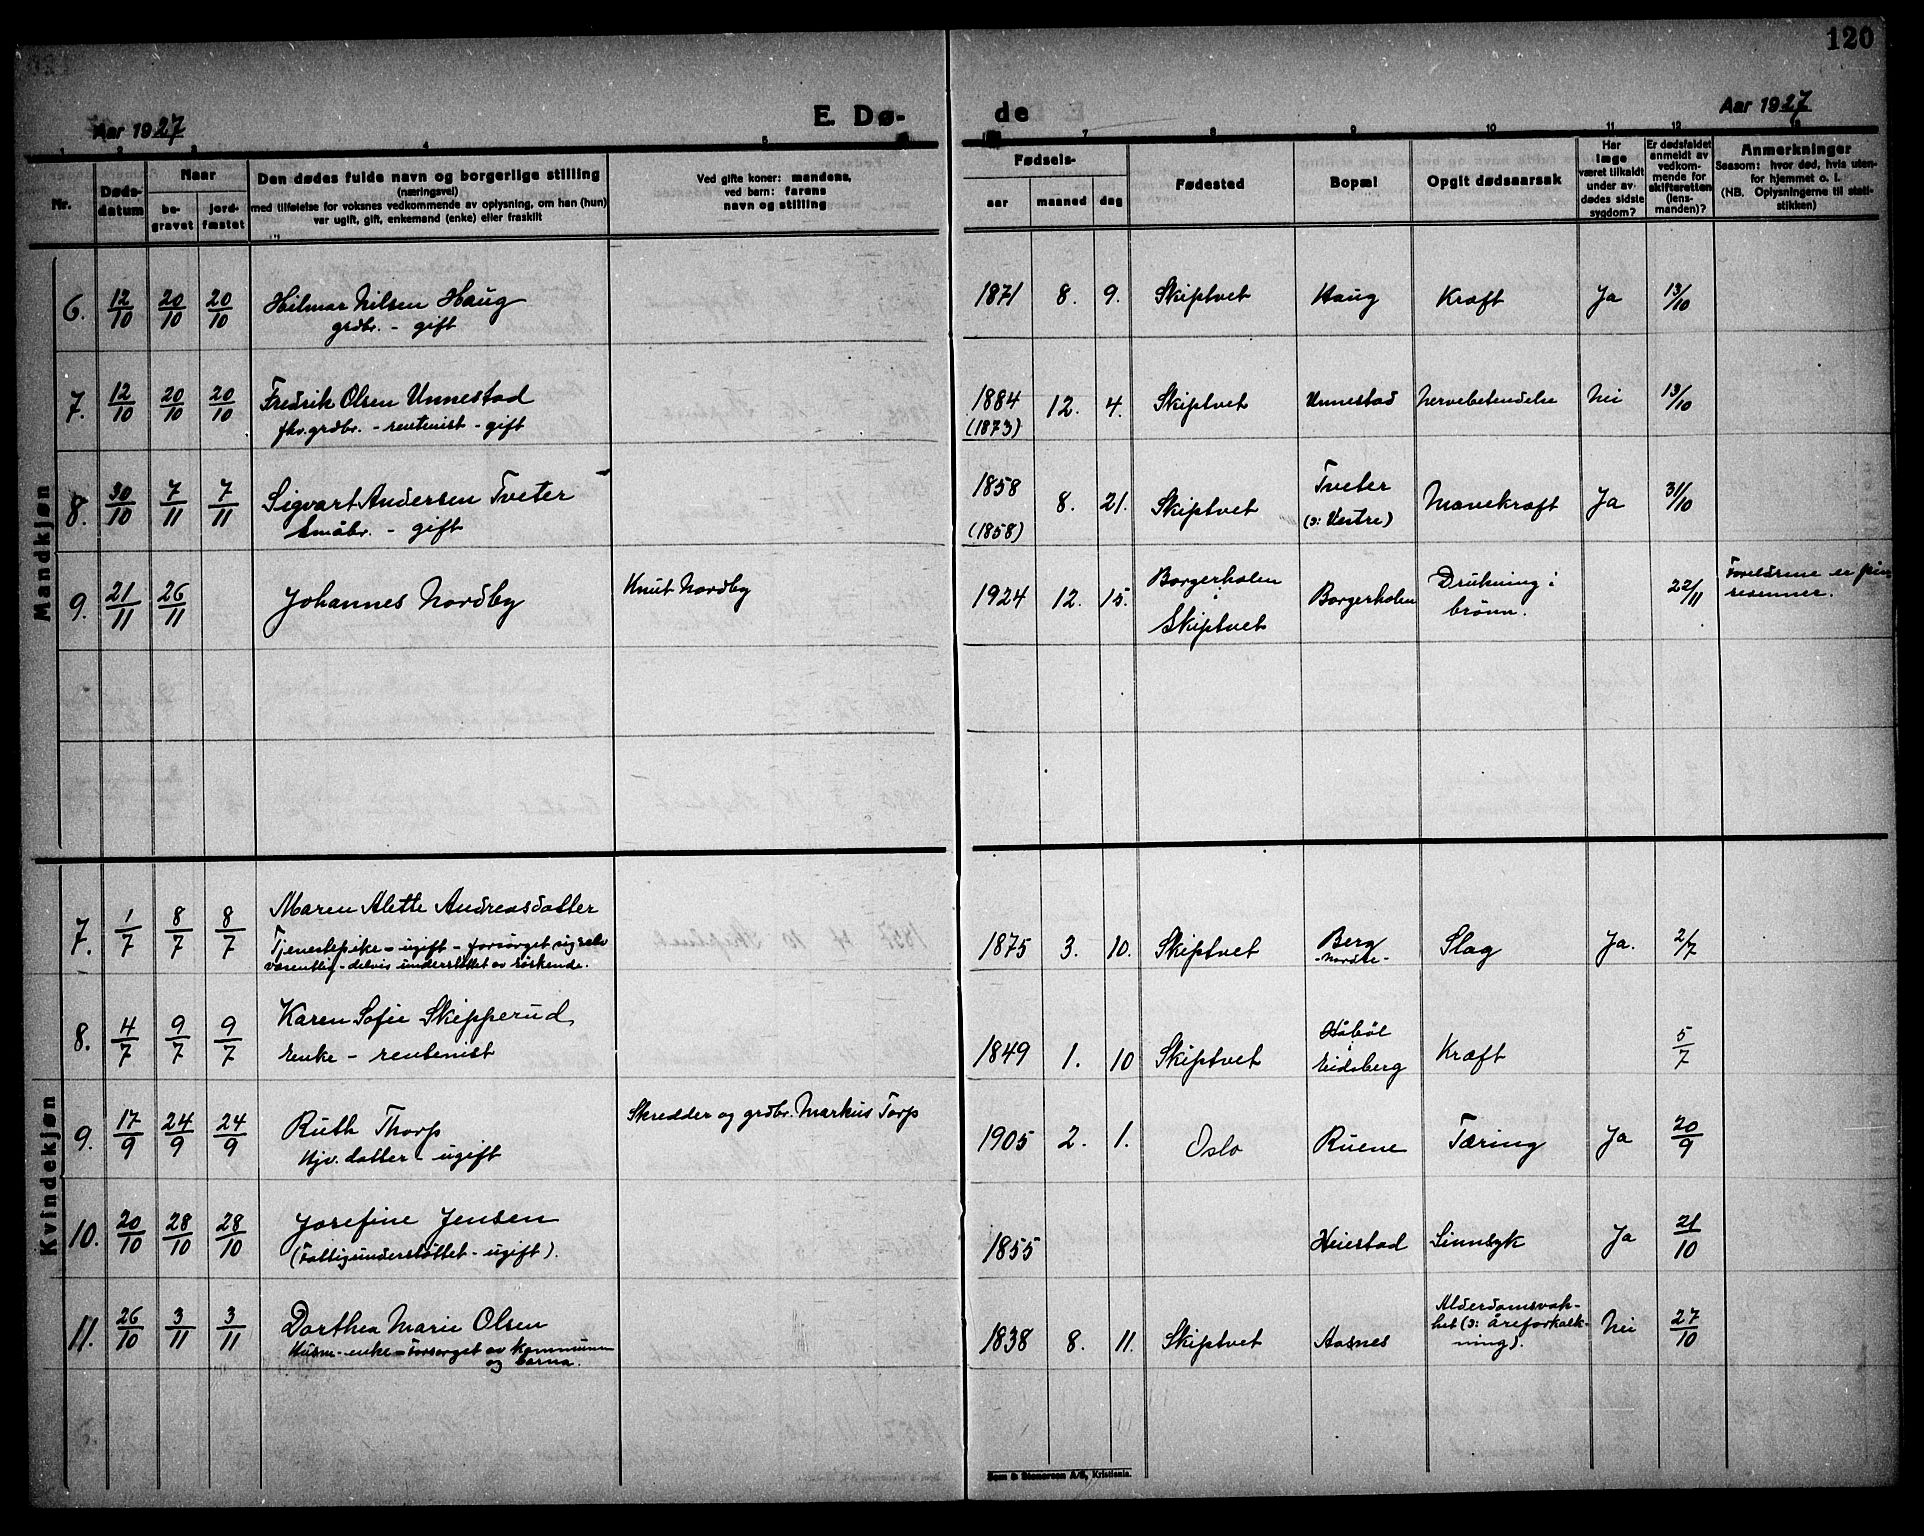 120
Aar 1927
E. Dø-
de
Aar 1927
1 2 3 4 5 7 8 9 10 11 12 13
Nr.
Døds-
datum
Naar
be-
gravet
jord-
fæstet
Den dødes fulde navn og borgerlige stilling
(næringsvei)
med tilføielse for voksnes vedkommende av oplysning, om han (hun)
var ugift, gift, enkemand (enke) eller fraskilt
Ved gifte koner: mandens,
ved barn: farens
navn og stilling
Fødsels-
aar maaned dag
Fødested
Bopæl
Opgit dødsaarsak
Har
læge
været tilkaldt
under av-
dødes sidste
sygdom?
Er dødsfaldet
anmeldt av
vedkom-
mende for
skifteretten
(lens-
manden)?
Anmerkninger
Saasom: hvor død, hvis uten-
for hjemmet o. l.
(NB. Oplysningerne til stati-
stikken)
Mandkjøn
6. 12/10 20/10 20/10 Hilmar Nilsen Haug 1871 8. 9. Skiptvet Haug Kræft Ja 13/10
grdbr. - gift
7. 12/10 20/10 20/10 Fredrik Olsen Unnestad 1884 12. 4. Skiptvet Unnestad Nervebetendelse Nei 13/10
fhv. grdbr. - rentenist - gift (1873)
8. 30/10 7/11 7/11 Sigvart Andersen Tveter 1858 8. 21. Skiptvet Tveter Mavekræft Ja 31/10
Småbr. - gift (1858) (ɔ: Vestre)
9. 21/11 26/11 Johannes Nordby Knut Nordby 1924 12. 15. Borgerholen i Skiptvet Borgerholen Drukning i
brönn. 22/11 Foreldrene er pin-
sevenner.
Kvindekjøn
7. 1/7 8/7 8/7 Maren Alette Andreasdatter 1875 3. 10. Skiptvet Berg Slag Ja. 2/7
Tjenestepike - ugift - forsörget sig selv -Nordre-
væsentlig - delvis understöttet av söskende.
8. 4/7 9/7 9/7 Karen Sofie Skipperud 1849 1. 10 Skiptvet Håböl i Eidsberg Kræft 5/7
Enke - rentenist
9. 17/9 24/9 24/9 Ruth Thorp Skredder og grdbr. Markus Torp 1905 2. 1. Oslo Ruene Tæring Ja 20/9
Hjv. datter - ugift
10. 20/10 28/10 28/10 Josefine Jensen 1855 Heiestad Sinnsyk Ja 21/10
(Fattigunderstöttet - ugift).
11. 26/10 3/11 3/11 Dorthea Marie Olsen 1838 8. 11. Skiptvet Aasnes Alderdomsvak-
het (ɔ: åreforkalk-
ning). Nei 27/10
Husm-enke - forsörget av kommunen
og barna.
Sem & Stenersen A/S, Kristiania.